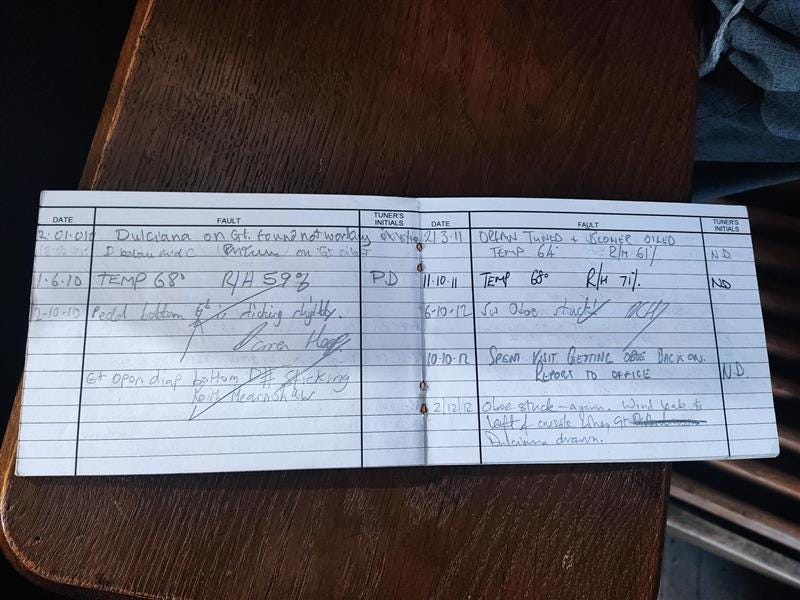 DATE FAULT TUNER'S INITIALS
Dulciana on Gt. found not working
D below mid C on Gt
1.6.10 TEMP 68° R/H 59% PD
2-10-10 Pedal bottom is sticking slightly.
Gt open diap bottom D# sticking
Keith Mearnshaw
DATE FAULT TUNER'S INITIALS
21.3.11 ORGAN TUNED + BLOWER OILED
TEMP 64° R/H 61% N.D.
11.10.11 TEMP 68° R/H 71% ND
6-10-12 Sw Oboe stuck
10.10.12 SPENT VISIT GETTING OBOE BACK ON.
REPORT TO OFFICE N.D.
2/12/12 Oboe stuck – again. Wind leak to
left of console when Gt
Dulciana drawn.